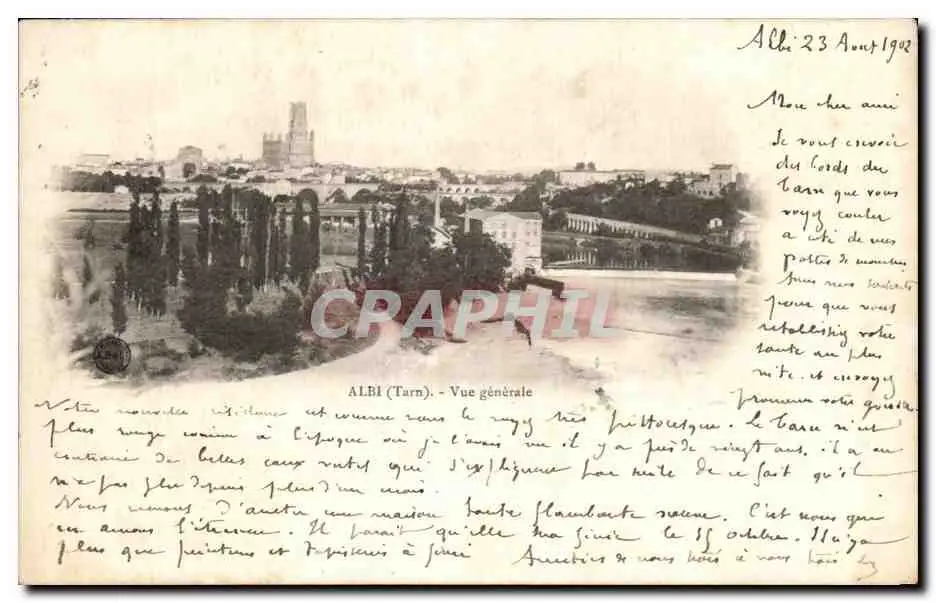 Albi 23 Aout 1902
Mon cher ami
Je vous envoie
des bords du
Tarn que vous
voyez couler
a côté de mes
pattes de mouches
pour que vous
rétablissiez votre
santé au plus
vite. et envoyez
CPARAMA
CPHIL
ALBI (Tarn). - Vue générale
Votre nouvelle résidence est comme vous le voyez très pittoresque. Le Tarn n'est
plus rouge comme à l'époque où je l'avais vu il y a près de vingt ans. il a au
contraire de belles eaux vertes qui s'expliquent par suite de ce fait qu'il
n'a pas plu depuis plus d'un mois.
Nous venons d'arrêter une maison toute flambante neuve. C'est nous qui
en aurons l'étrenne. Il parait qu'elle sera finie le 15 octobre. Il n'y a
plus que peintures et tapisseries à finir
Amitiés de nous trois à vous trois